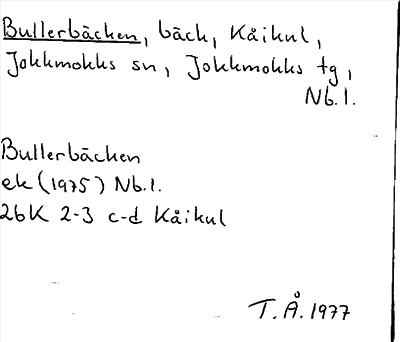 Bullerbäcken, bäck, Kåikul,
Jokkmokks sn, Jokkmokks tg,
Nb.l.
Bullerbäcken
ek (1975) Nb.l.
26K 2-3 c-d Kåikul
T.Å. 1977